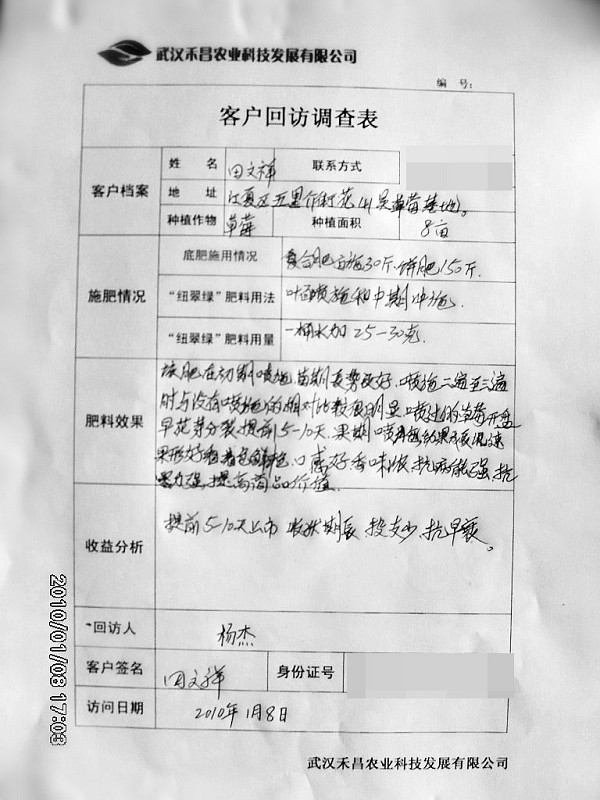 武汉禾昌农业科技发展有限公司
编 号:
客户回访调查表
客户档案
姓 名 田文祥 联系方式
地 址 江夏区五里界街花山吴草莓基地。
种植作物 草莓 种植面积 8亩
施肥情况
底肥施用情况 复合肥亩施30斤.饼肥150斤.
“纽翠绿”肥料用法 叶面喷施和中期冲施.
“纽翠绿”肥料用量 一桶水加25-30克.
肥料效果
该肥在初期喷施,苗期长势较好.喷施二遍至三遍
时与没有喷施的相对比较很明显 喷过的草莓开盘
早花芽分裂提前5-10天.果期喷
果形好 着色鲜艳.口感好香味浓.抗病能强.抗
强.提高商品价值.
收益分析
提前5-10天上市 收获期长 投支少.抗早衰。
回访人 杨杰
客户签名 田文祥 身份证号
访问日期 2010年1月8日
武汉禾昌农业科技发展有限公司
2010/01/08 17:03